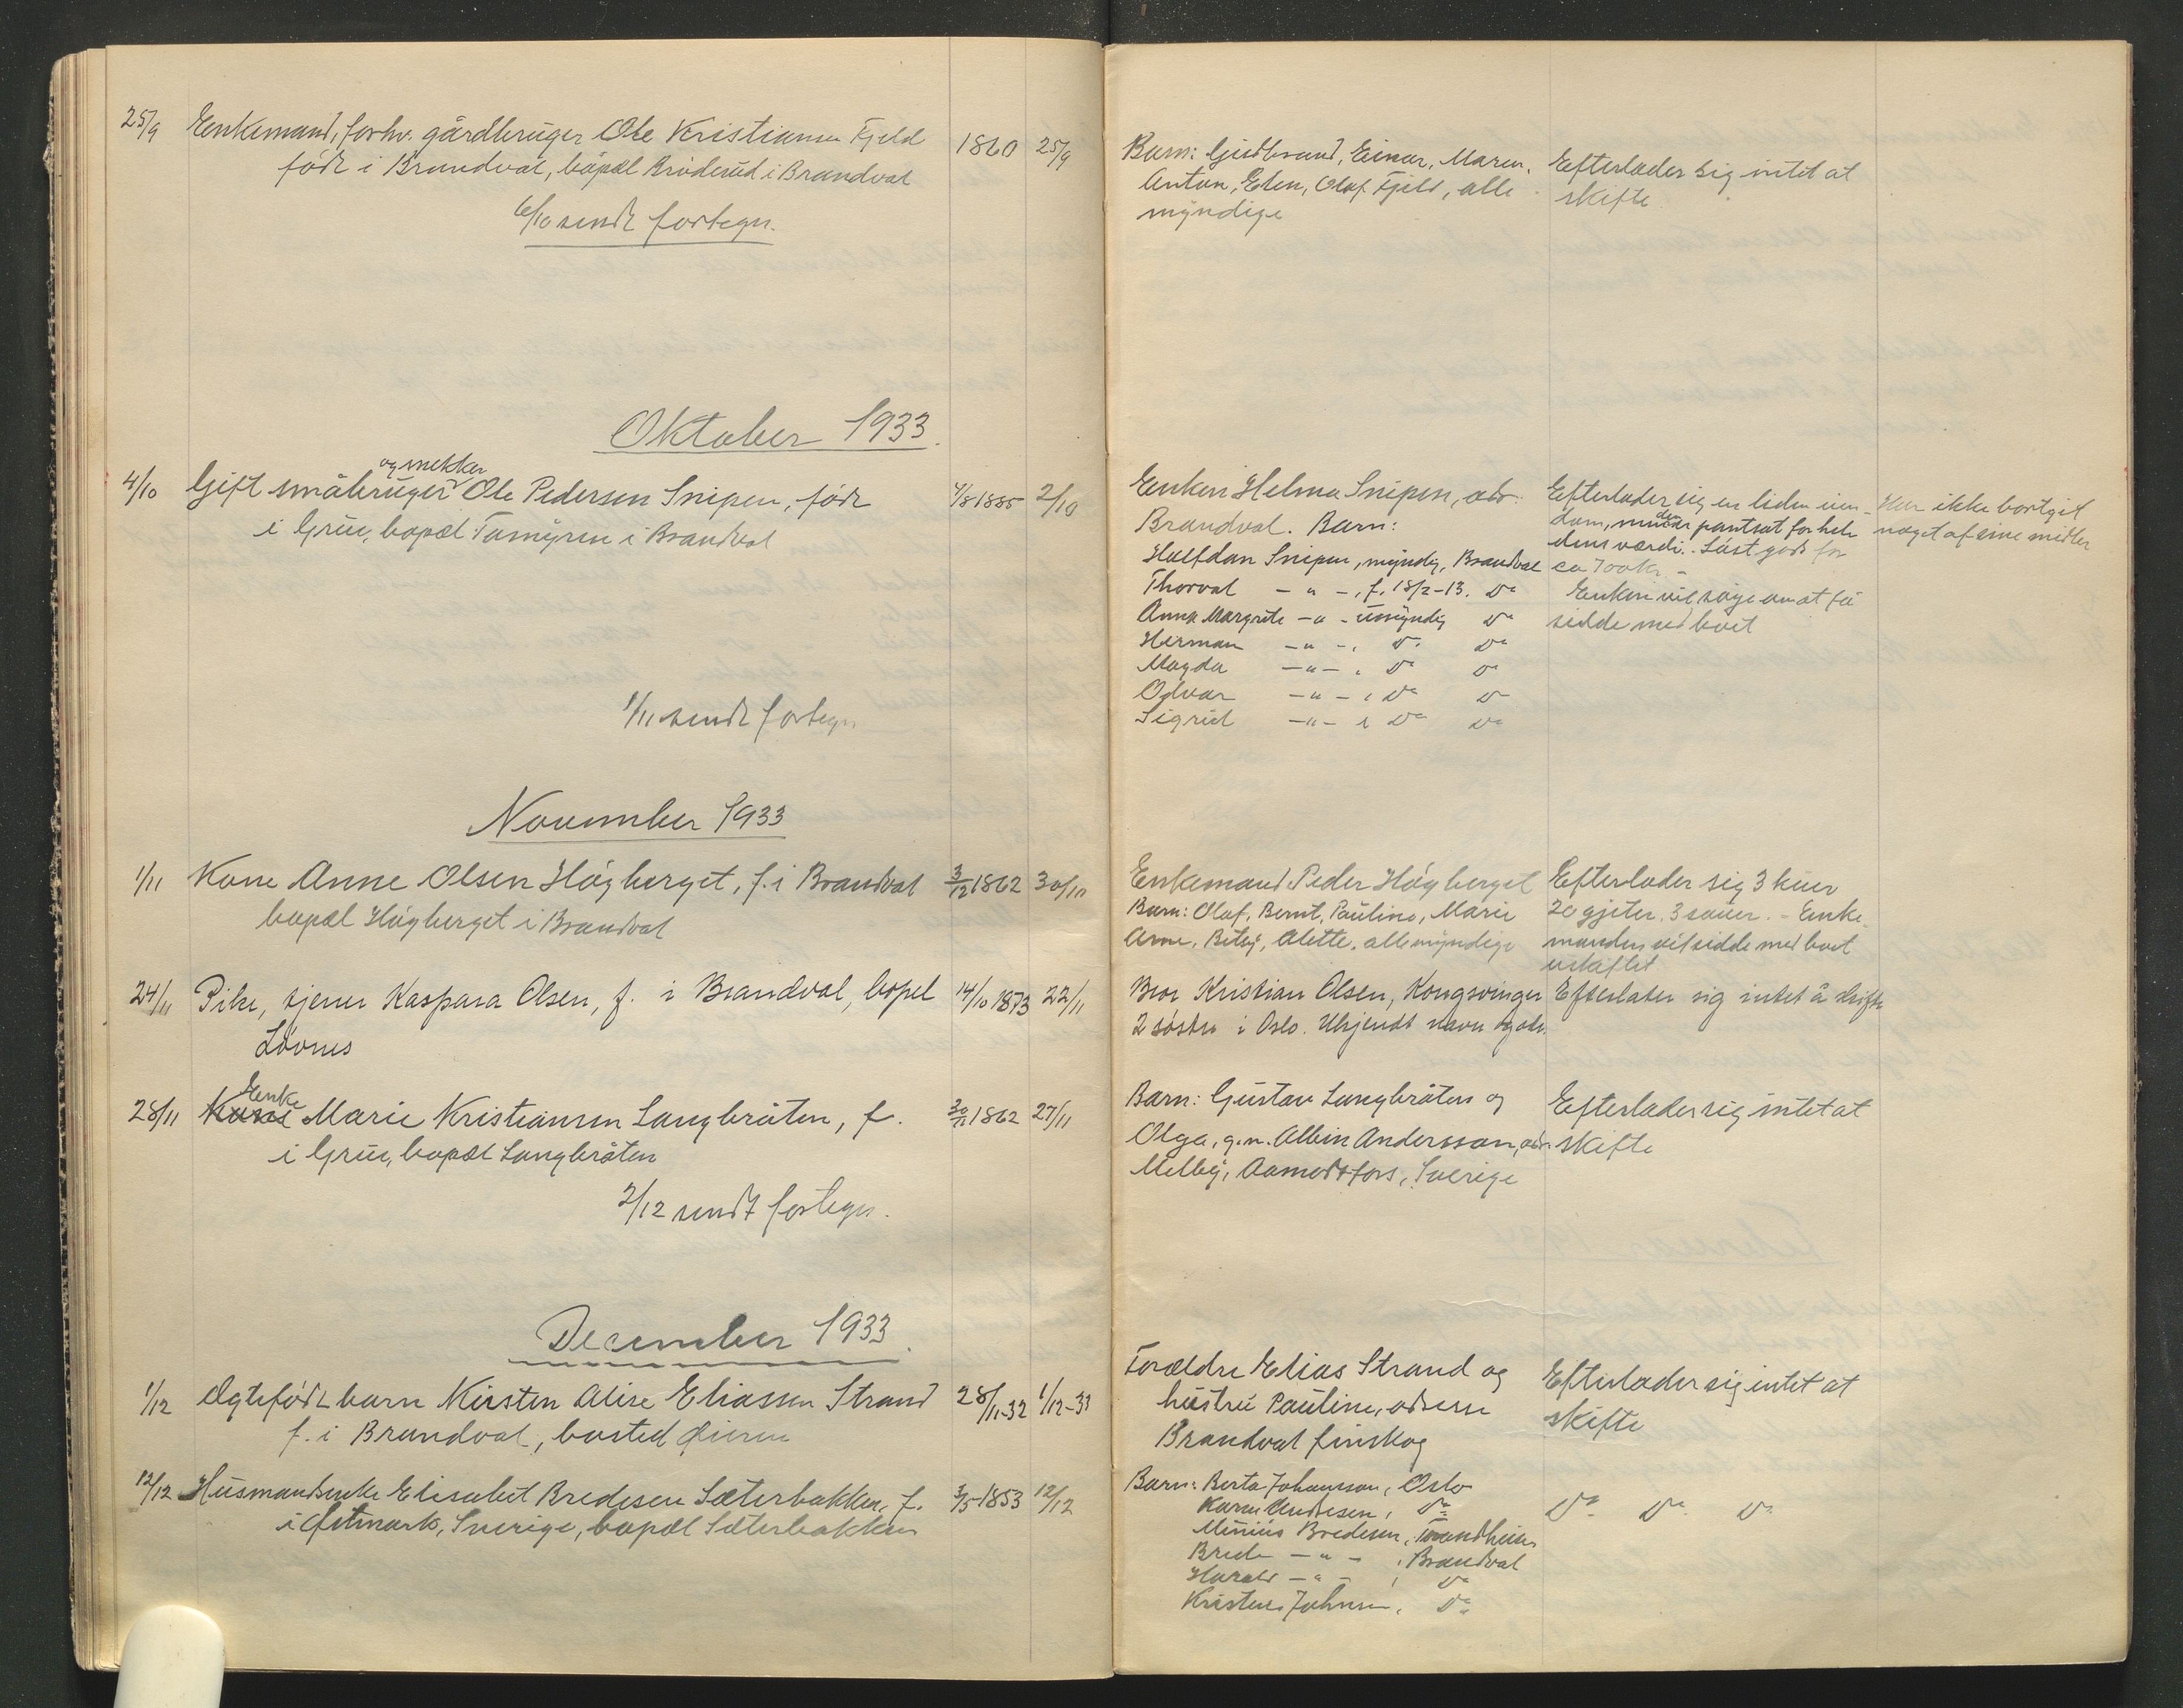 25/9 Enkemand, forhv. gårdbruger Ole Kristiansen Fjeld 1860 25/9
född i Brandval, bopæl Bröderud i Brandval
6/10 sendt fortegn.
Oktober 1933.
og snekker
4/10 Gift småbruger Ole Pedersen Snipen, född 4/8 1885 2/10
i Grue, bopæl Tamyren i Brandval
1/11 sendt fortegn
November 1933
1/11 Kone Anne Olsen Högberget, f. i Brandval 3/12 1862 30/10
bopæl Högberget i Brandval
24/11 Pike, tjener Kaspara Olsen, f. i Brandval, bopel 14/10 1873 22/11
Lövnes
Enke
28/11 Kone Marie Kristiansen Langbråten, f. 20/11 1862 27/11
i Grue, bopæl Langbråten
2/12 sendt fortegn.
December 1933.
1/12 Ægtefödt barn Kirsten Alise Eliassen Strand 28/11-32 1/12-33
f. i Brandval, bosted
12/12 Husmandsenke Elisabet Bredesen Sæterbakken, f. 3/5-1853 12/12
i Østmark, Sverige, bopæl Sæterbakken
Barn: Gudbrand, Einar, Maren,
Anton, Elen, Olaf Fjeld, alle
myndige
Efterlader sig intet at
skifte
Enken Helma Snipen, adr.
Brandval. Barn:
Halfdan Snipen, myndig, Brandval
Thorval - " - , f. 18/2-13. Do
Anna Margrete - " - umyndig Do
Herman - " - , Do Do
Magda - " - , Do Do
Odvar - " - , Do Do
Sigrid - " - , Do Do
Efterlader sig en liden eien-
dom, men den er pantsat for hele
dens værdi. Löst gods for
ca 700 kr. -
Enken vil söge om at få
sidde med boet
Har ikke bortgit
noget af sine midler
Enkemand Peder Högberget
Barn: Olaf, Bernt, Pauline, Marie
Arne, Betsy, Alette, alle myndige
Efterlader sig 3 kuer
20 gjeter. 3 sauer. - Enke-
manden vil sidde med boet
uskiftet
Bror Kristian Olsen, Kongsvinger
2 söstre i Oslo. Ukjendt navn og adr.
Efterlater sig intet å skifte
Barn: Gustav Langbråten og
Olga, g.m. Albin Andersson, adr.
Melby, Aamotsfors, Sverige
Efterlader sig intet at
skifte
Forældre Elias Strand og
hustru Pauline, adresse
Brandval finskog
Efterlader sig intet at
skifte
Barn: Berta Johansson, Oslo
Karen Andresen, Do
Minius Bredesen, Trondheim
Brede - " - , Brandval
Harald - " - , Do
Kristine Johnsen, Do
Do Do Do